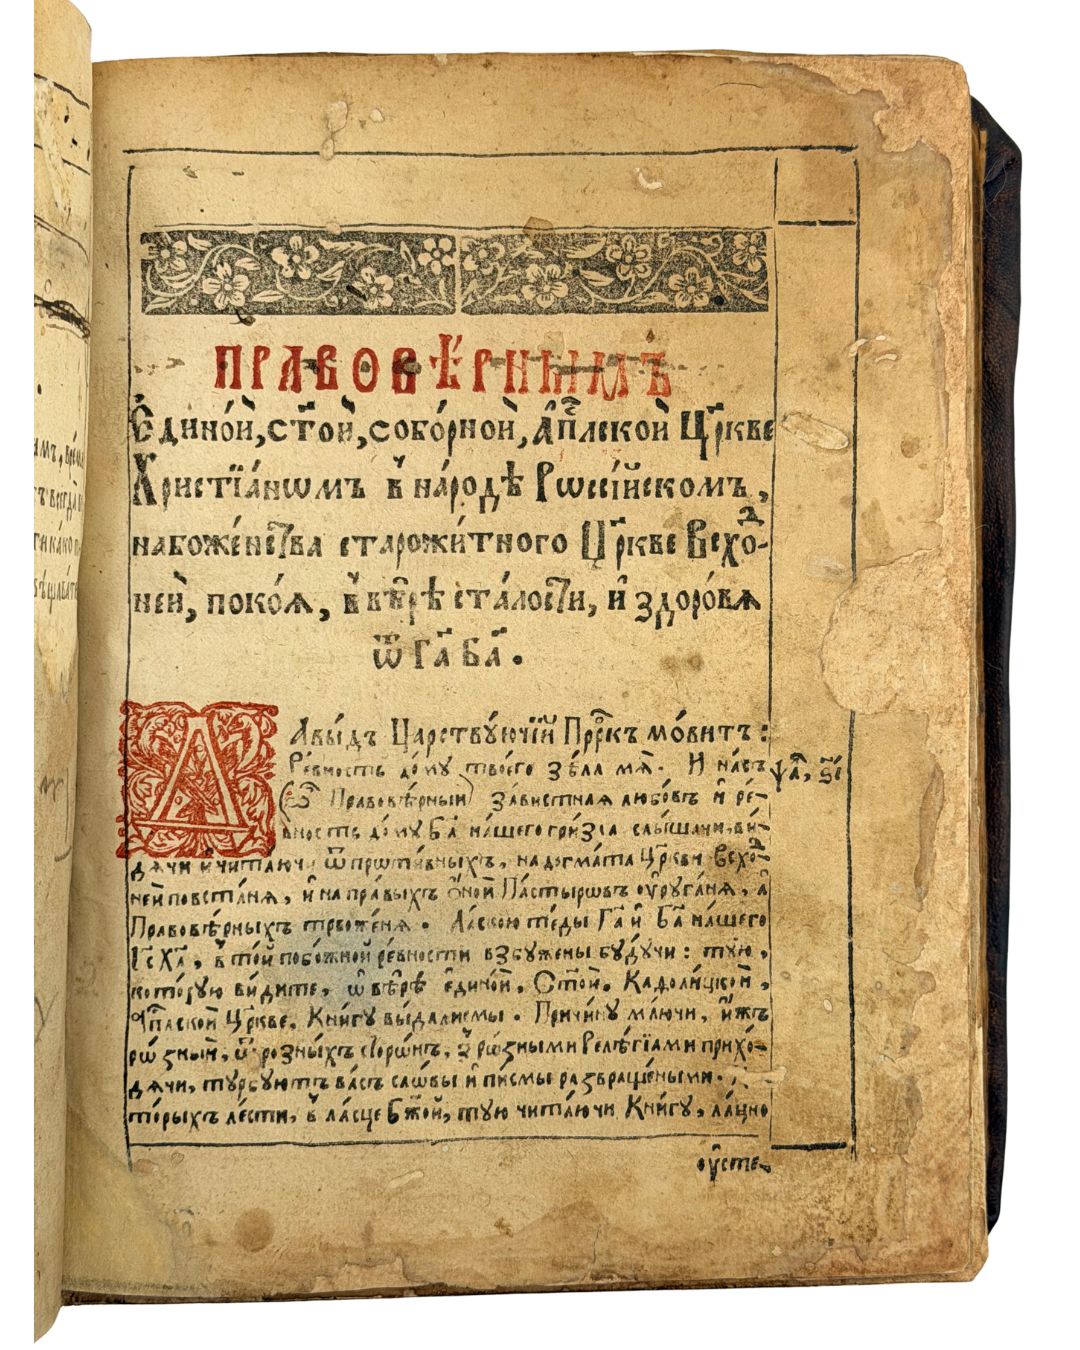 ПРАВОВѢ́РНЫМЪ
Єдино́й, ст҃ой, собо́рной, а҆пⷭ҇лской Цр҃кве
Христїа́нѡмъ в̾ наро́дѣ Рѡссі́йскомъ,
набоже́нⷭ҇тва старожи́тного Цр҃кве Всхоⷣ-
ней, поко́ѧ, в̾ вѣ́рѣ ста́лоⷭ҇ти, и҆ здоро́вѧ
ѿ Гⷭ҇а Бг҃а.
Давы́дъ Ца́рствуючїй Прⷪ҇ркъ мо́витъ:
Ре́вность до́му твоего̀ зѣла мѧ̀. И на́съ
(ѽ Правовѣ́рныи) за́вистнаѧ любо́вь и҆ ре́-
вность до́му Бг҃а на́шего гри́зла слы́шачи, ви́-
дѧчи и҆ чита́ючи ѿ проти́вныхъ, на до́гмата Цр҃кви Всхоⷣ-
ней повста́нѧ, и҆ на пра́выхъ ѻ҆́ной Па́стырѡвъ оуруга́нѧ, а҆
Правовѣ́рныхъ трвоже́нѧ. Ла́скою те́ды Гⷭ҇а и҆ Бг҃а на́шего
І҆с Хⷭ҇а, в̾ то́й побо́жной ре́вности взбу́жены бу́дучи: тую,
кото́рую ви́дите, ѡ҆ вѣ́рѣ є҆дино́й, Ст҃ой, Каѳоли́цкой,
а҆пⷭ҇лской Цр҃кве, Кни́гу вы́далисмы. Причи́ну ма́ючи, и҆жъ
рѡ́зный, ѿ ро́зныхъ сторѡ́нъ, з рѡ́зными Реле́гїами прихо́-
дѧчи, ту́рбуютъ ва́съ сло́вы и҆ пи́смы развраще́ными.
то́рыхъ ле́сти, в̾ ла́сце Бж҃ой, тую чита́ючи Кни́гу, ла́цно
ѱа҃л, ѯ҃и
оу҆сте-